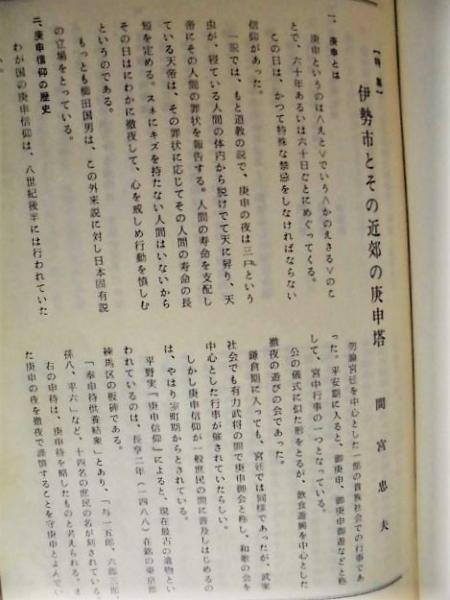 〔特集〕
伊勢市とその近郊の庚申塔
間宮忠夫
一、庚申とは
庚申というのは∧えと∨でいう∧かのえさる∨のこ
とで、六十年あるいは六十日ごとにめぐってくる。
この日は、かつて特殊な禁忌をしなければならない
信仰があった。
一説では、もと道教の説で、庚申の夜は三尸という
虫が、寝ている人間の体内から脱けでて天に昇り、天
帝にその人間の罪状を報告する。人間の寿命を支配し
ている天帝は、その罪状に応じてその人間の寿命の長
短を定める。スネにキズを持たない人間はいないから
その日はにわかに徹夜して、心を戒しめ行動を慎しむ
というのである。
もっとも柳田国男は、この外来説に対し日本固有説
の立場をとっている。
二、庚申信仰の歴史
わが国の庚申信仰は、八世紀後半には行われていた
勿論宮廷を中心とした一部の貴族社会での行事であ
った。平安期に入ると、御庚申、御庚申御遊などと称
して、宮中行事の一つとなっている。
公の儀式に似た形をとるが、飲食遊興を中心とした
徹夜の遊びの会であった。
鎌倉期に入っても、宮廷では同様であったが、武家
社会でも有力武将の間で庚申御会と称し、和歌の会を
中心とした行事が催されていたらしい。
しかし庚申信仰が一般世民の間に普及しはじめるの
は、やはり室町期からとされている。
平野実『庚申信仰』によると、現在最古の遺物とい
われているのは、長享二年（一四八八）在銘の東京都
練馬区の板碑である。
「奉申待供養結衆」とあり、「与一五郎、六郎三郎、
孫八、平六」など、十四名の庶民の名が刻されている。
右の申待は、庚申待を略したものと考えられる。
た庚申の夜を徹夜で謹慎することを守庚申とよんでい